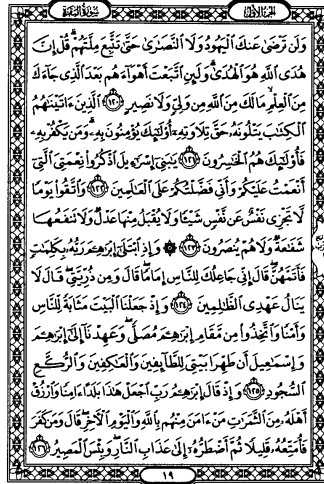 الجزء الأول سورة البقرة
وَلَن تَرْضَىٰ عَنكَ ٱلْيَهُودُ وَلَا ٱلنَّصَٰرَىٰ حَتَّىٰ تَتَّبِعَ مِلَّتَهُمْ ۗ قُلْ إِنَّ
هُدَى ٱللَّهِ هُوَ ٱلْهُدَىٰ ۗ وَلَئِنِ ٱتَّبَعْتَ أَهْوَآءَهُم بَعْدَ ٱلَّذِى جَآءَكَ
مِنَ ٱلْعِلْمِ ۙ مَا لَكَ مِنَ ٱللَّهِ مِن وَلِىٍّ وَلَا نَصِيرٍ ١٢٠ ٱلَّذِينَ ءَاتَيْنَٰهُمُ
ٱلْكِتَٰبَ يَتْلُونَهُۥ حَقَّ تِلَاوَتِهِۦٓ أُو۟لَٰٓئِكَ يُؤْمِنُونَ بِهِۦ ۗ وَمَن يَكْفُرْ بِهِۦ
فَأُو۟لَٰٓئِكَ هُمُ ٱلْخَٰسِرُونَ ١٢١ يَٰبَنِىٓ إِسْرَٰٓءِيلَ ٱذْكُرُوا۟ نِعْمَتِىَ ٱلَّتِىٓ
أَنْعَمْتُ عَلَيْكُمْ وَأَنِّى فَضَّلْتُكُمْ عَلَى ٱلْعَٰلَمِينَ ١٢٢ وَٱتَّقُوا۟ يَوْمًا
لَّا تَجْزِى نَفْسٌ عَن نَّفْسٍ شَيْـًٔا وَلَا يُقْبَلُ مِنْهَا عَدْلٌ وَلَا تَنفَعُهَا
شَفَٰعَةٌ وَلَا هُمْ يُنصَرُونَ ١٢٣ ۞ وَإِذِ ٱبْتَلَىٰٓ إِبْرَٰهِـۧمَ رَبُّهُۥ بِكَلِمَٰتٍ
فَأَتَمَّهُنَّ ۖ قَالَ إِنِّى جَاعِلُكَ لِلنَّاسِ إِمَامًا ۖ قَالَ وَمِن ذُرِّيَّتِى ۖ قَالَ لَا
يَنَالُ عَهْدِى ٱلظَّٰلِمِينَ ١٢٤ وَإِذْ جَعَلْنَا ٱلْبَيْتَ مَثَابَةً لِّلنَّاسِ
وَأَمْنًا وَٱتَّخِذُوا۟ مِن مَّقَامِ إِبْرَٰهِـۧمَ مُصَلًّى ۖ وَعَهِدْنَآ إِلَىٰٓ إِبْرَٰهِـۧمَ
وَإِسْمَٰعِيلَ أَن طَهِّرَا بَيْتِىَ لِلطَّآئِفِينَ وَٱلْعَٰكِفِينَ وَٱلرُّكَّعِ
ٱلسُّجُودِ ١٢٥ وَإِذْ قَالَ إِبْرَٰهِـۧمُ رَبِّ ٱجْعَلْ هَٰذَا بَلَدًا ءَامِنًا وَٱرْزُقْ
أَهْلَهُۥ مِنَ ٱلثَّمَرَٰتِ مَنْ ءَامَنَ مِنْهُم بِٱللَّهِ وَٱلْيَوْمِ ٱلْءَاخِرِ ۖ قَالَ وَمَن كَفَرَ
فَأُمَتِّعُهُۥ قَلِيلًا ثُمَّ أَضْطَرُّهُۥٓ إِلَىٰ عَذَابِ ٱلنَّارِ ۖ وَبِئْسَ ٱلْمَصِيرُ ١٢٦
١٩